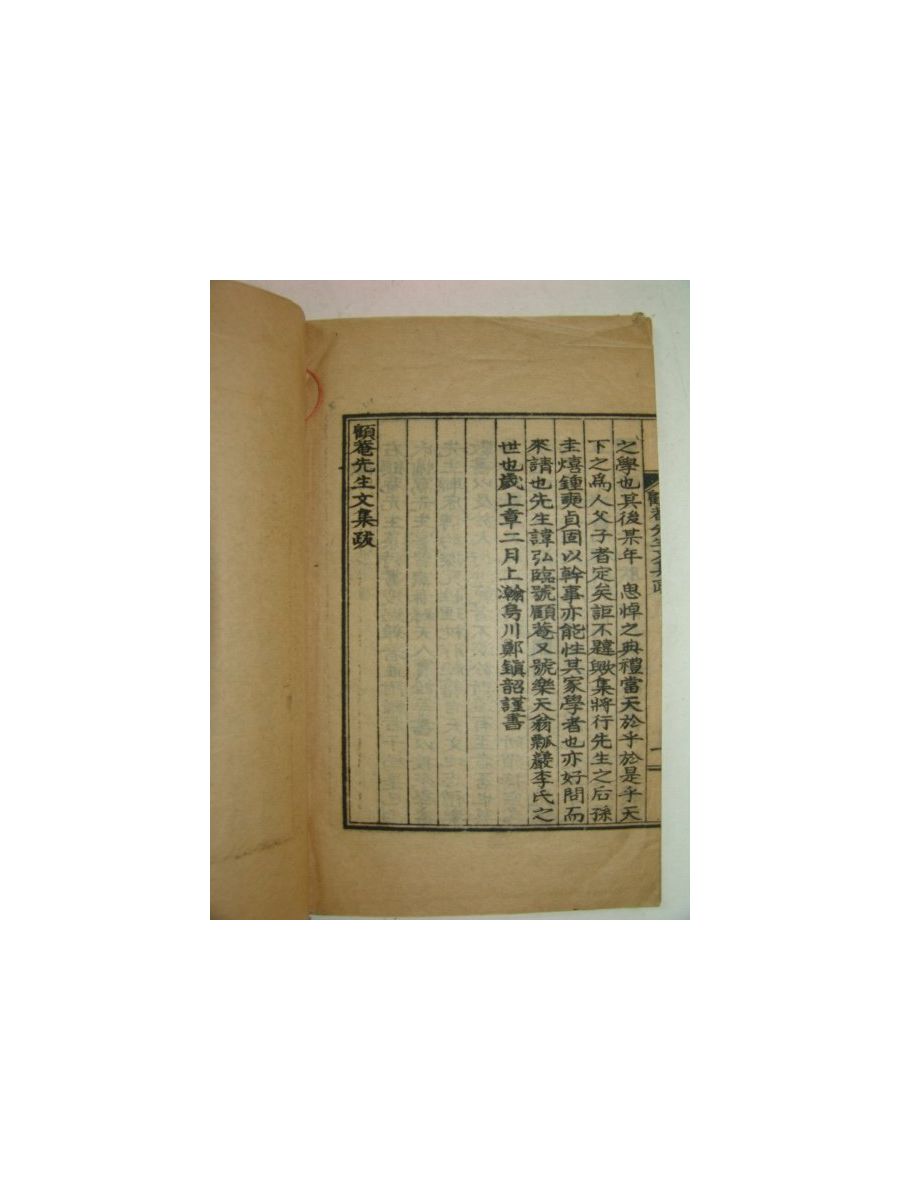 之學也其後某年 恩悼之典禮當天於乎於是乎天
下之爲人父子者定矣詎不韙歟集將行先生之后孫
圭熺鍾奭貞固以幹事亦能性其家學者也亦好問而
來請也先生諱弘臨號顧菴又號樂天翁瓢巖李氏之
世也歲上章二月上瀚烏川鄭鎭韶謹書
顧菴先生文集跋